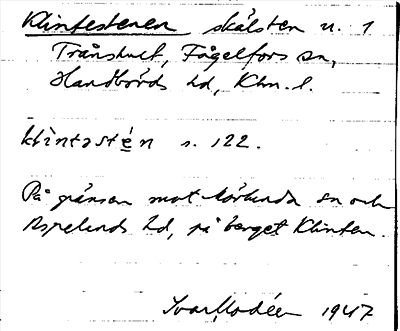 Klintestenen skålsten n. 1
Tråshult, Fågelfors sn,
Handbörds hd, Klm. l.
klintastén s. 122.
På gränsen mot sn och
Aspelands hd, på berget Klinten.
Ivar Modéer 1947